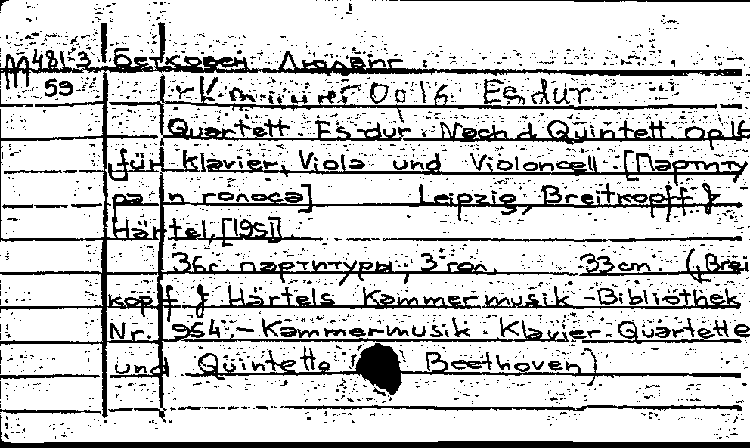 М481-3 Бетховен Людвиг.
59 Op 16. Es dur
Quartett. Es-dur. Nach d. Quintett op 16
für Klavier, Viola und Violoncell. [Партиту
ра и голоса] Leipzig, Breitkopf &
Härtel, [195]
36с. партитуры, 3 гол. 33cm. (Brei
kopf & Härtels Kammermusik-Bibliothek
Nr. 964.-Kammermusik. Klavier-Quartette
und Quintette Beethoven)